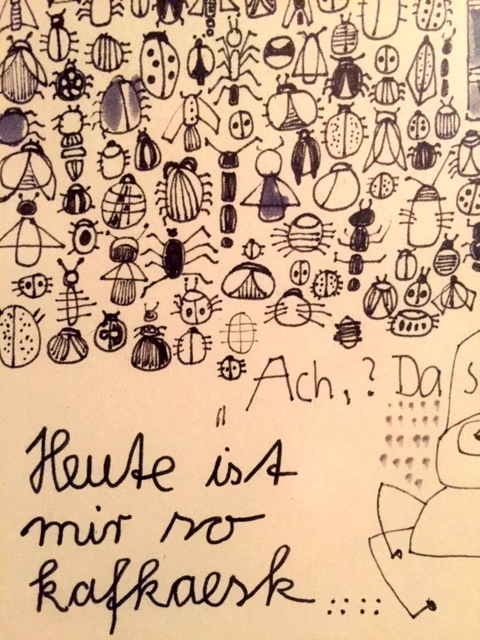 Ach,? Da s
Heute ist
mir so
kafkaesk.....